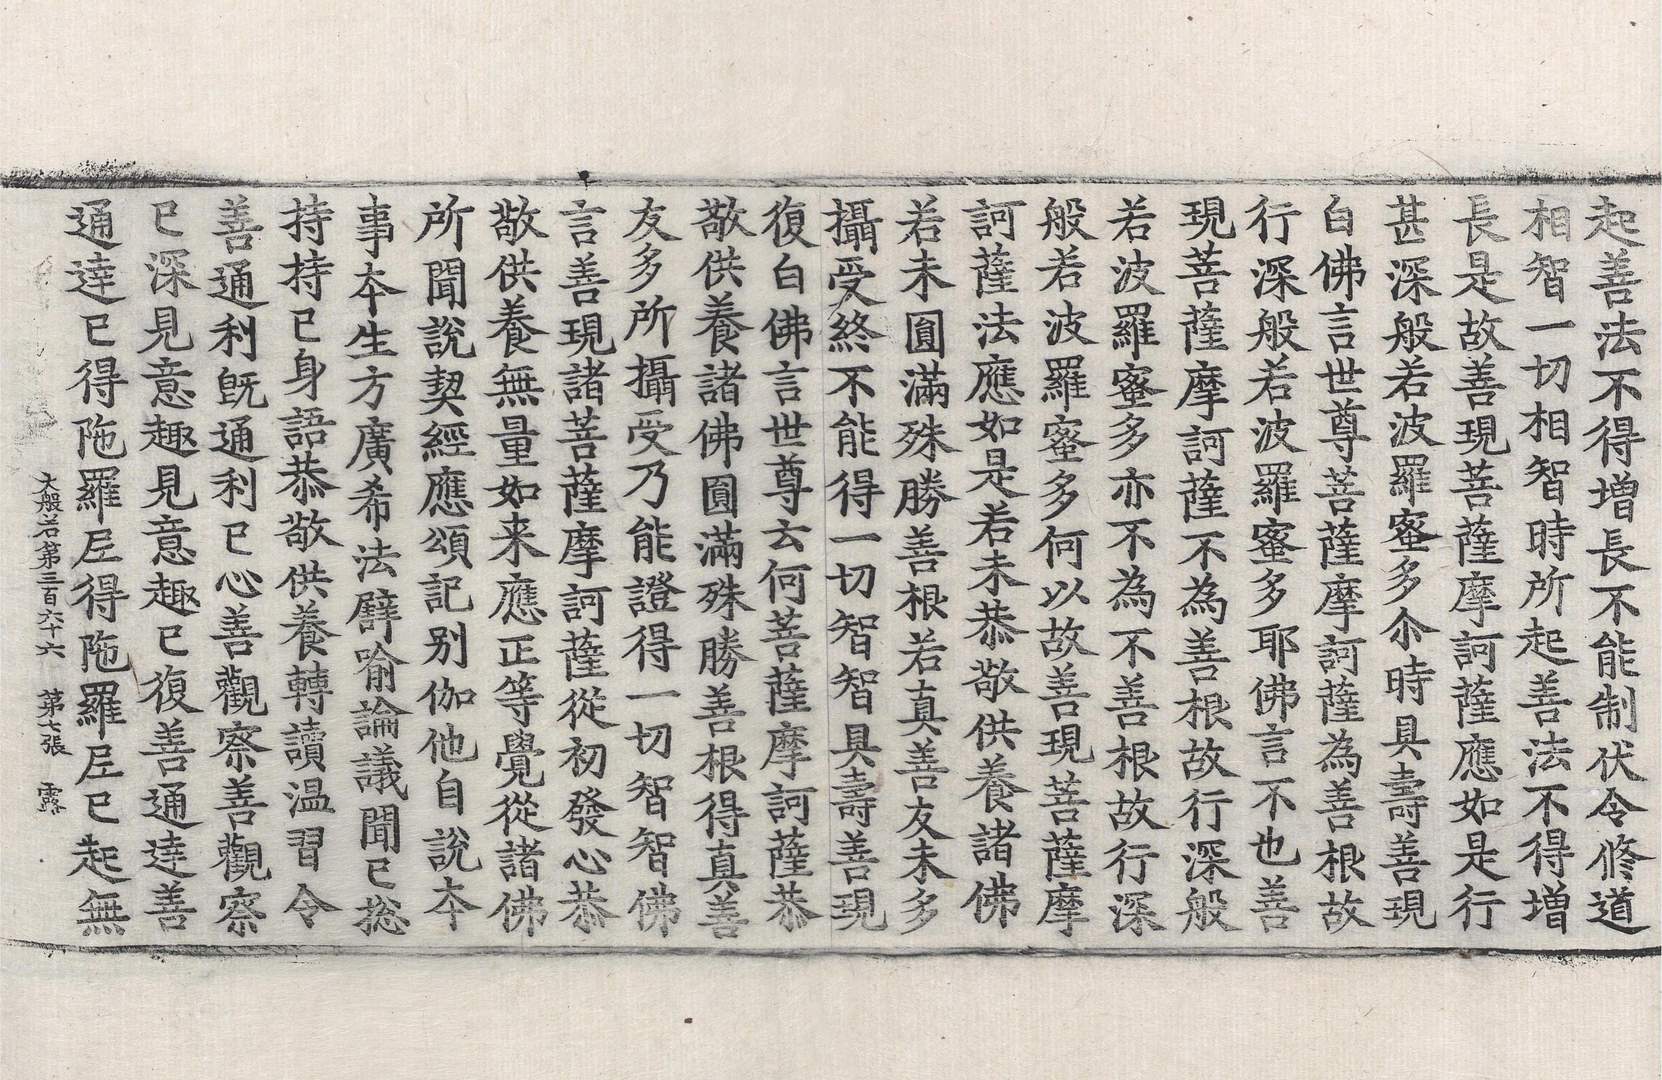 起善法不得增長不能制伏令修道
相智一切相智時所起善法不得增
長是故善現菩薩摩訶薩應如是行
甚深般若波羅蜜多尒時具壽善現
白佛言世尊菩薩摩訶薩為善根故
行深般若波羅蜜多耶佛言不也善
現菩薩摩訶薩不為善根故行深般
若波羅蜜多亦不為不善根故行深
般若波羅蜜多何以故善現菩薩摩
訶薩法應如是若未恭敬供養諸佛
若未圓滿殊勝善根若真善友未多
攝受終不能得一切智智具壽善現
復白佛言世尊云何菩薩摩訶薩恭
敬供養諸佛圓滿殊勝善根得真善
友多所攝受乃能證得一切智智佛
言善現諸菩薩摩訶薩從初發心恭
敬供養無量如来應正等覺從諸佛
所聞說契經應頌記別伽他自說本
事本生方廣希法譬喻論議聞已惣
持持已身語恭敬供養轉讀温習令
善通利旣通利已心善觀察善觀察
已深見意趣見意趣已復善通達善
通達已得陁羅尼得陁羅尼已起無
大般若第三百六十六 第七張 露